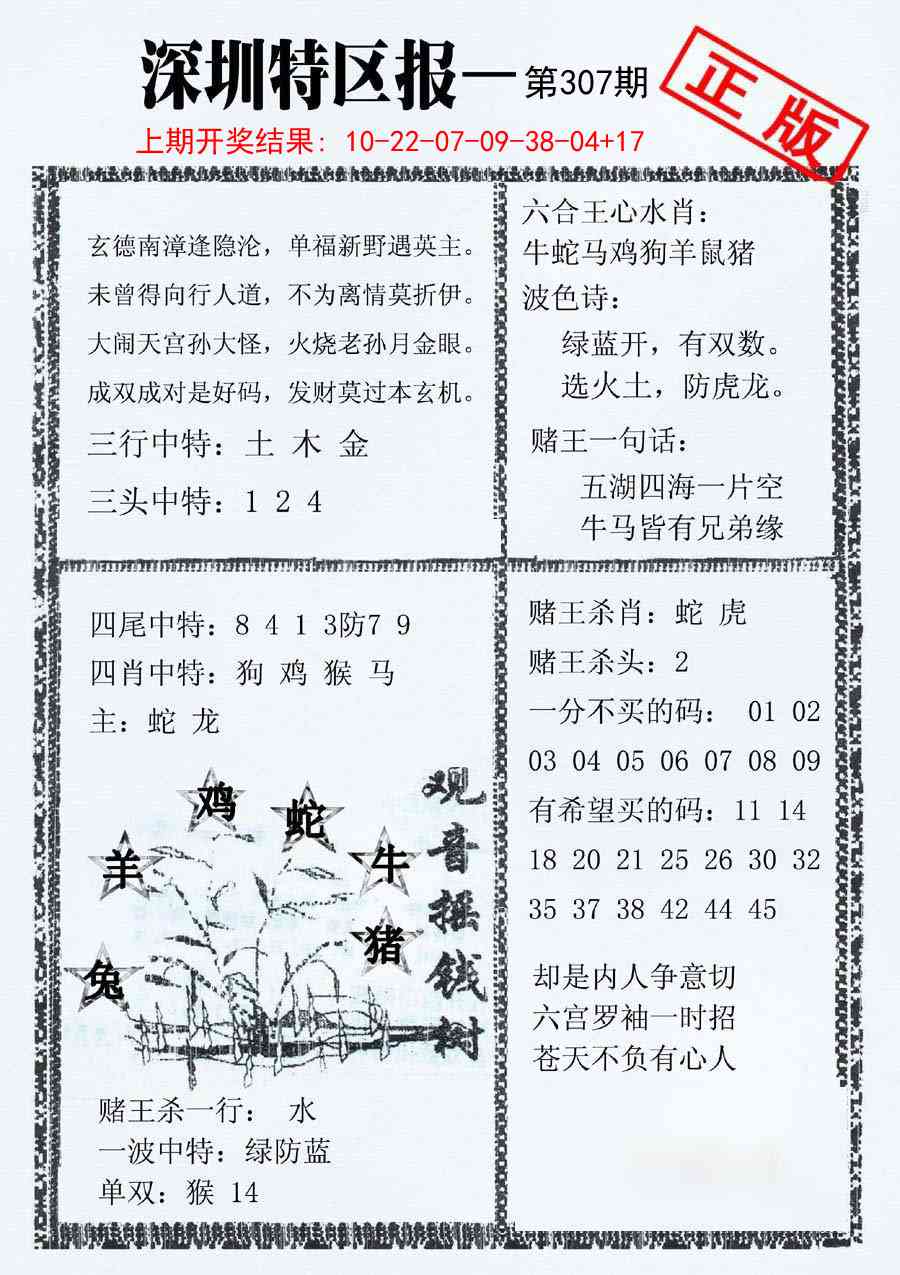 深圳特区报—第307期
正版
上期开奖结果：10-22-07-09-38-04+17
玄德南漳逢隐沦，单福新野遇英主。
未曾得向行人道，不为离情莫折伊。
大闹天宫孙大怪，火烧老孙月金眼。
成双成对是好码，发财莫过本玄机。
三行中特：土 木 金
三头中特：1 2 4
六合王心水肖：
牛蛇马鸡狗羊鼠猪
波色诗：
绿蓝开，有双数。
选火土，防虎龙。
赌王一句话：
五湖四海一片空
牛马皆有兄弟缘
四尾中特：8 4 1 3防7 9
四肖中特：狗 鸡 猴 马
主：蛇 龙
鸡
蛇
羊
牛
猪
兔
观音摇钱树
赌王杀一行： 水
一波中特：绿防蓝
单双：猴 14
赌王杀肖：蛇 虎
赌王杀头：2
一分不买的码： 01 02
03 04 05 06 07 08 09
有希望买的码：11 14
18 20 21 25 26 30 32
35 37 38 42 44 45
却是内人争意切
六宫罗袖一时招
苍天不负有心人